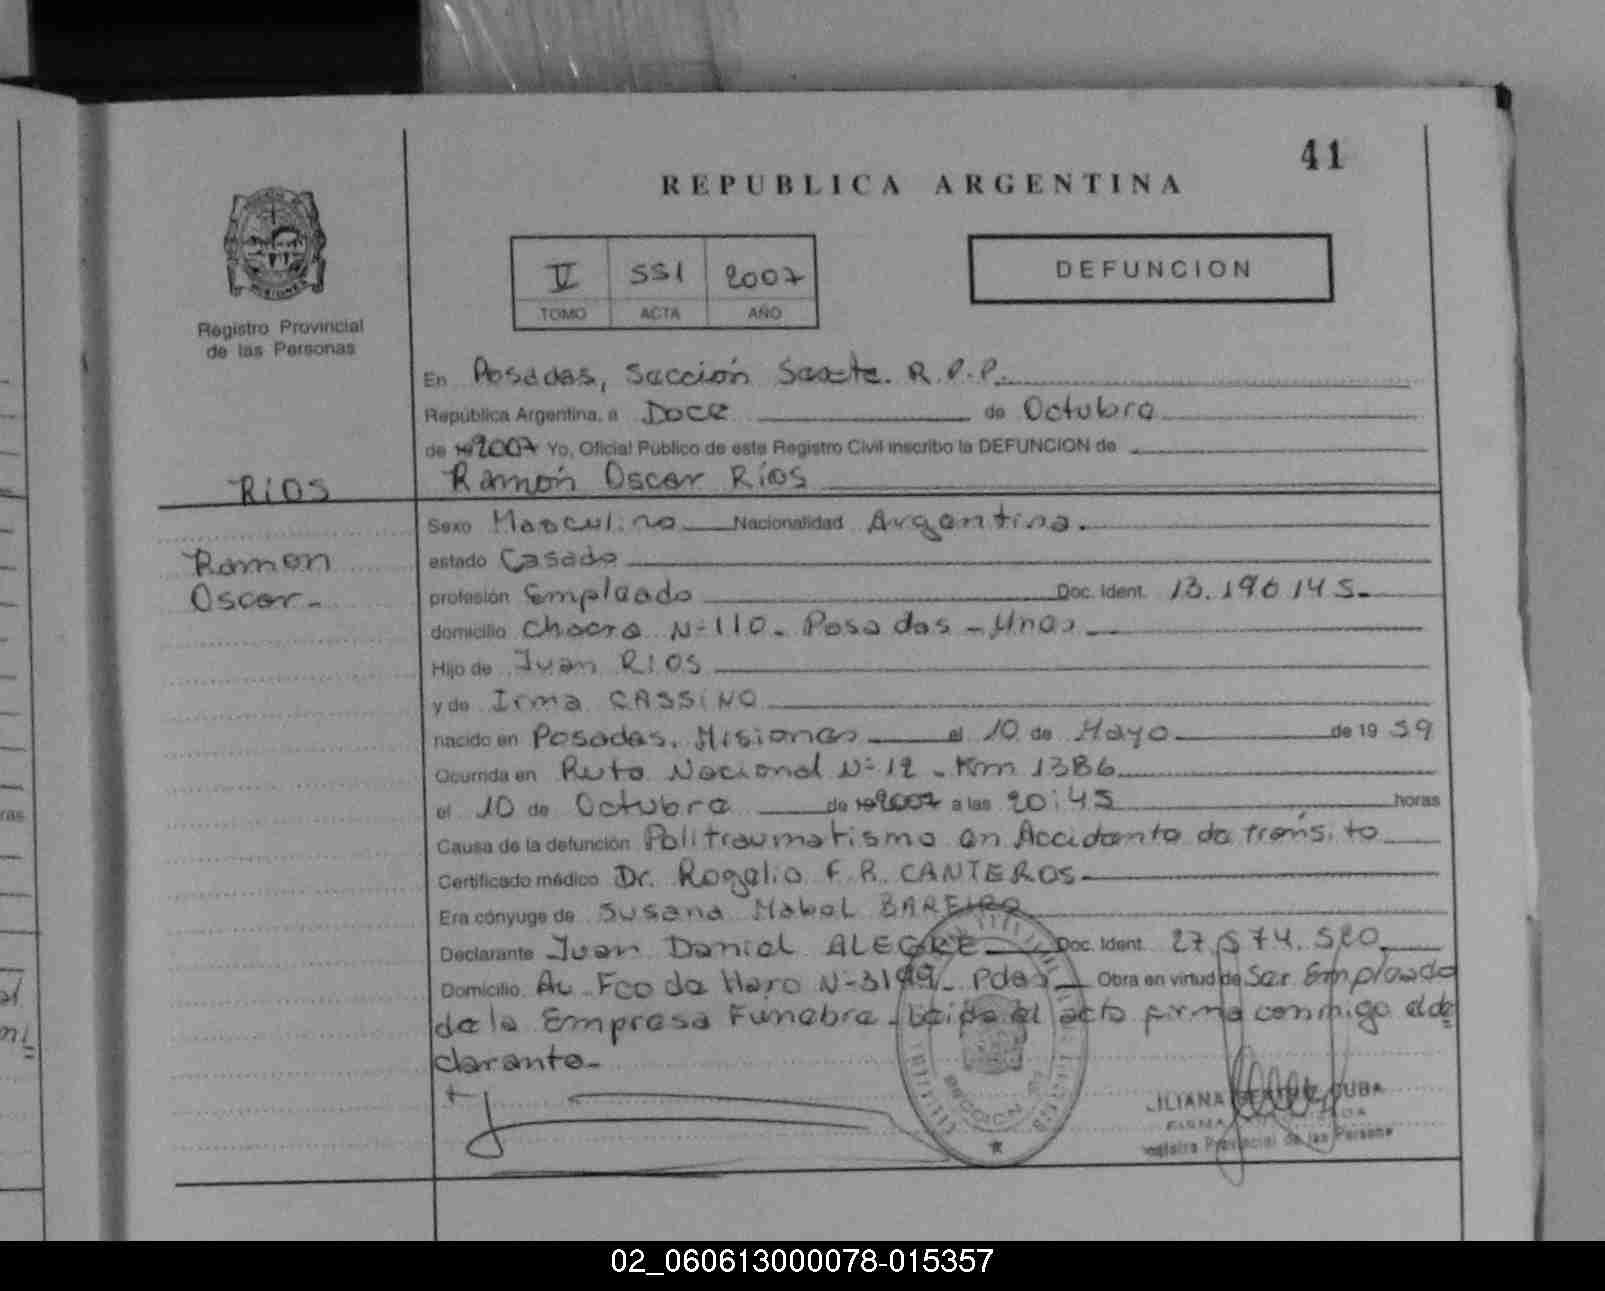 41
REPUBLICA ARGENTINA
V 551 2007
TOMO ACTA AÑO
DEFUNCION
MISIONES
Registro Provincial
de las Personas
En Posadas, Sección Sexta. R.P.P.
República Argentina, a Doce de Octubre
de 19 2007 Yo, Oficial Público de este Registro Civil inscribo la DEFUNCION de
RIOS
Ramón Oscar Ríos
Ramon
Oscar.-
Sexo Masculino Nacionalidad Argentina.
estado Casado
profesión Empleado Doc. Ident. 13.196145.
domicilio Chacra N-110- Posadas - Mnes
Hijo de Juan RIOS
y de Irma CASSINO
nacido en Posadas, Misiones el 10 de Mayo de 19 59
Ocurrida en Ruta Nacional N-12 - Km 1386
el 10 de Octubre de 19 2007 a las 20:45 horas
Causa de la defunción Politraumatismo en Accidente de tránsito
Certificado médico Dr. Rogelio F.R. CANTEROS
Era cónyuge de Susana Mabel BAREIRO
Declarante Juan Daniel ALEGRE Doc. Ident. 27.574.520
Domicilio Av Fco de Haro N-3199- Pdas Obra en virtud de Ser Empleado
de la Empresa Funebre. Leída el acta firma conmigo el de
clarante-
SECCION
LILIANA CUBA
FIRMA
Registro Provincial de las Persona
ras
02_060613000078-015357